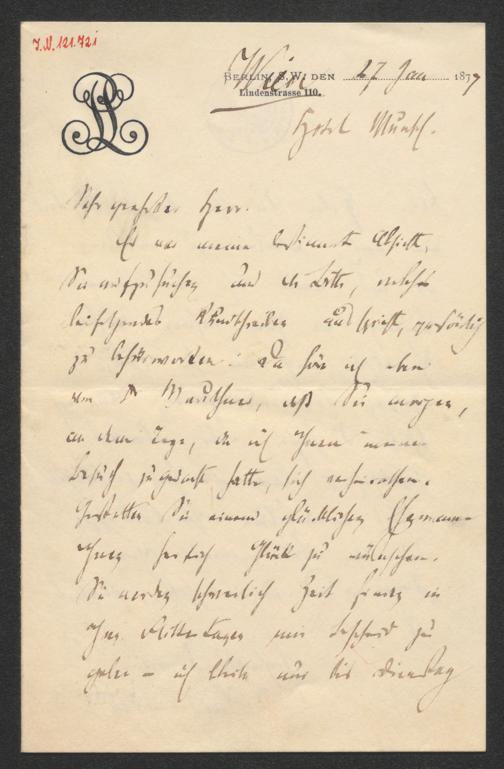 I.N. 121.721
PL
BERLIN, S.W. DEN 27 Jan 1877
Wien
Lindenstrasse 110.
Hotel Munsch.
Sehr geehrter Herr.
Es war meine bestimmte Absicht,
Sie aufzusuchen und die Bitte, welche
beifolgendes Rundschreiben ausspricht, persönlich
zu befürworten. Da höre ich eben
von Dr Mauthner, daß Sie morgen,
an dem Tage, da ich Ihnen meinen
Besuch zugedacht hatte, sich verheirathen.
Gestatten Sie einem glücklichen Ehemann
Ihnen herzlich Glück zu wünschen.
Sie werden schwerlich Zeit finden in
Ihren Flittertagen mir Bescheid zu
geben – ich bleibe nur bis Dienstag